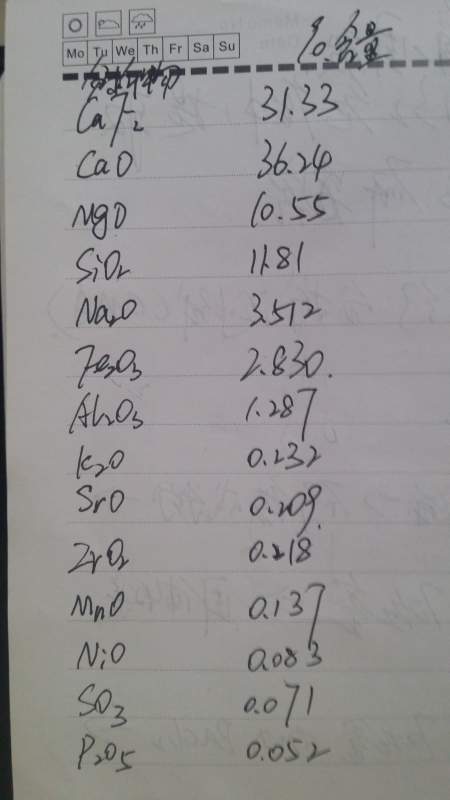 Mo Tu We Th Fr Sa Su
%含量
CaF2 31.33
CaO 36.24
MgO 10.55
SiO2 11.81
Na2O 3.512
Fe2O3 2.830.
Al2O3 1.287
K2O 0.232
SrO 0.209
ZrO2 0.218
MnO 0.137
NiO 0.083
SO3 0.071
P2O5 0.052